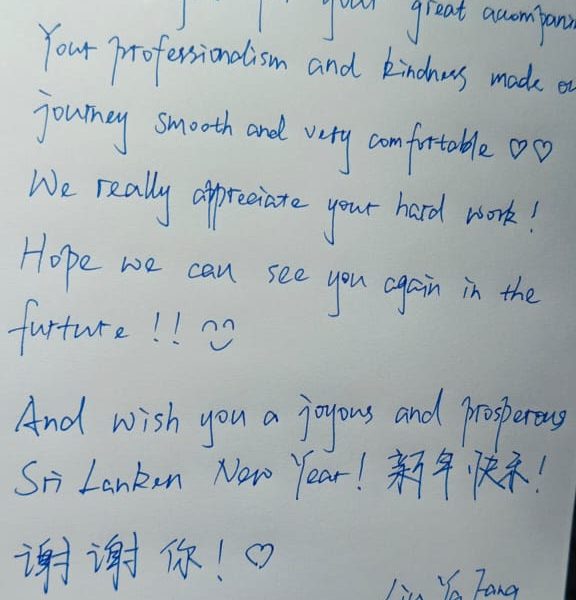 your great
Your professionalism and kindness made
journey smooth and very comfortable ♡♡
We really appreciate your hard work!
Hope we can see you again in the
furture !!
And wish you a joyous and prosperous
Sri Lanken New Year! 新年快乐!
谢谢你!♡